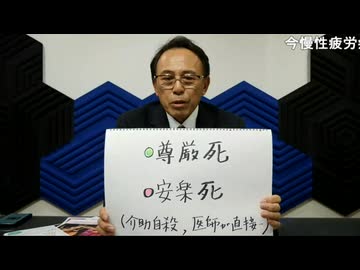 今慢性疲労
尊厳死
安楽死
(介助自殺,医師が直接-)